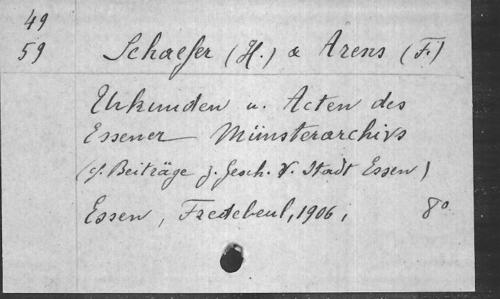 49
59 Schaefer (H.) & Arens (F.)
Urkunden u. Acten des
Essener Münsterarchivs
(cf. Beiträge z. Gesch. v. Stadt Essen)
Essen, Fredebeul, 1906, 8º